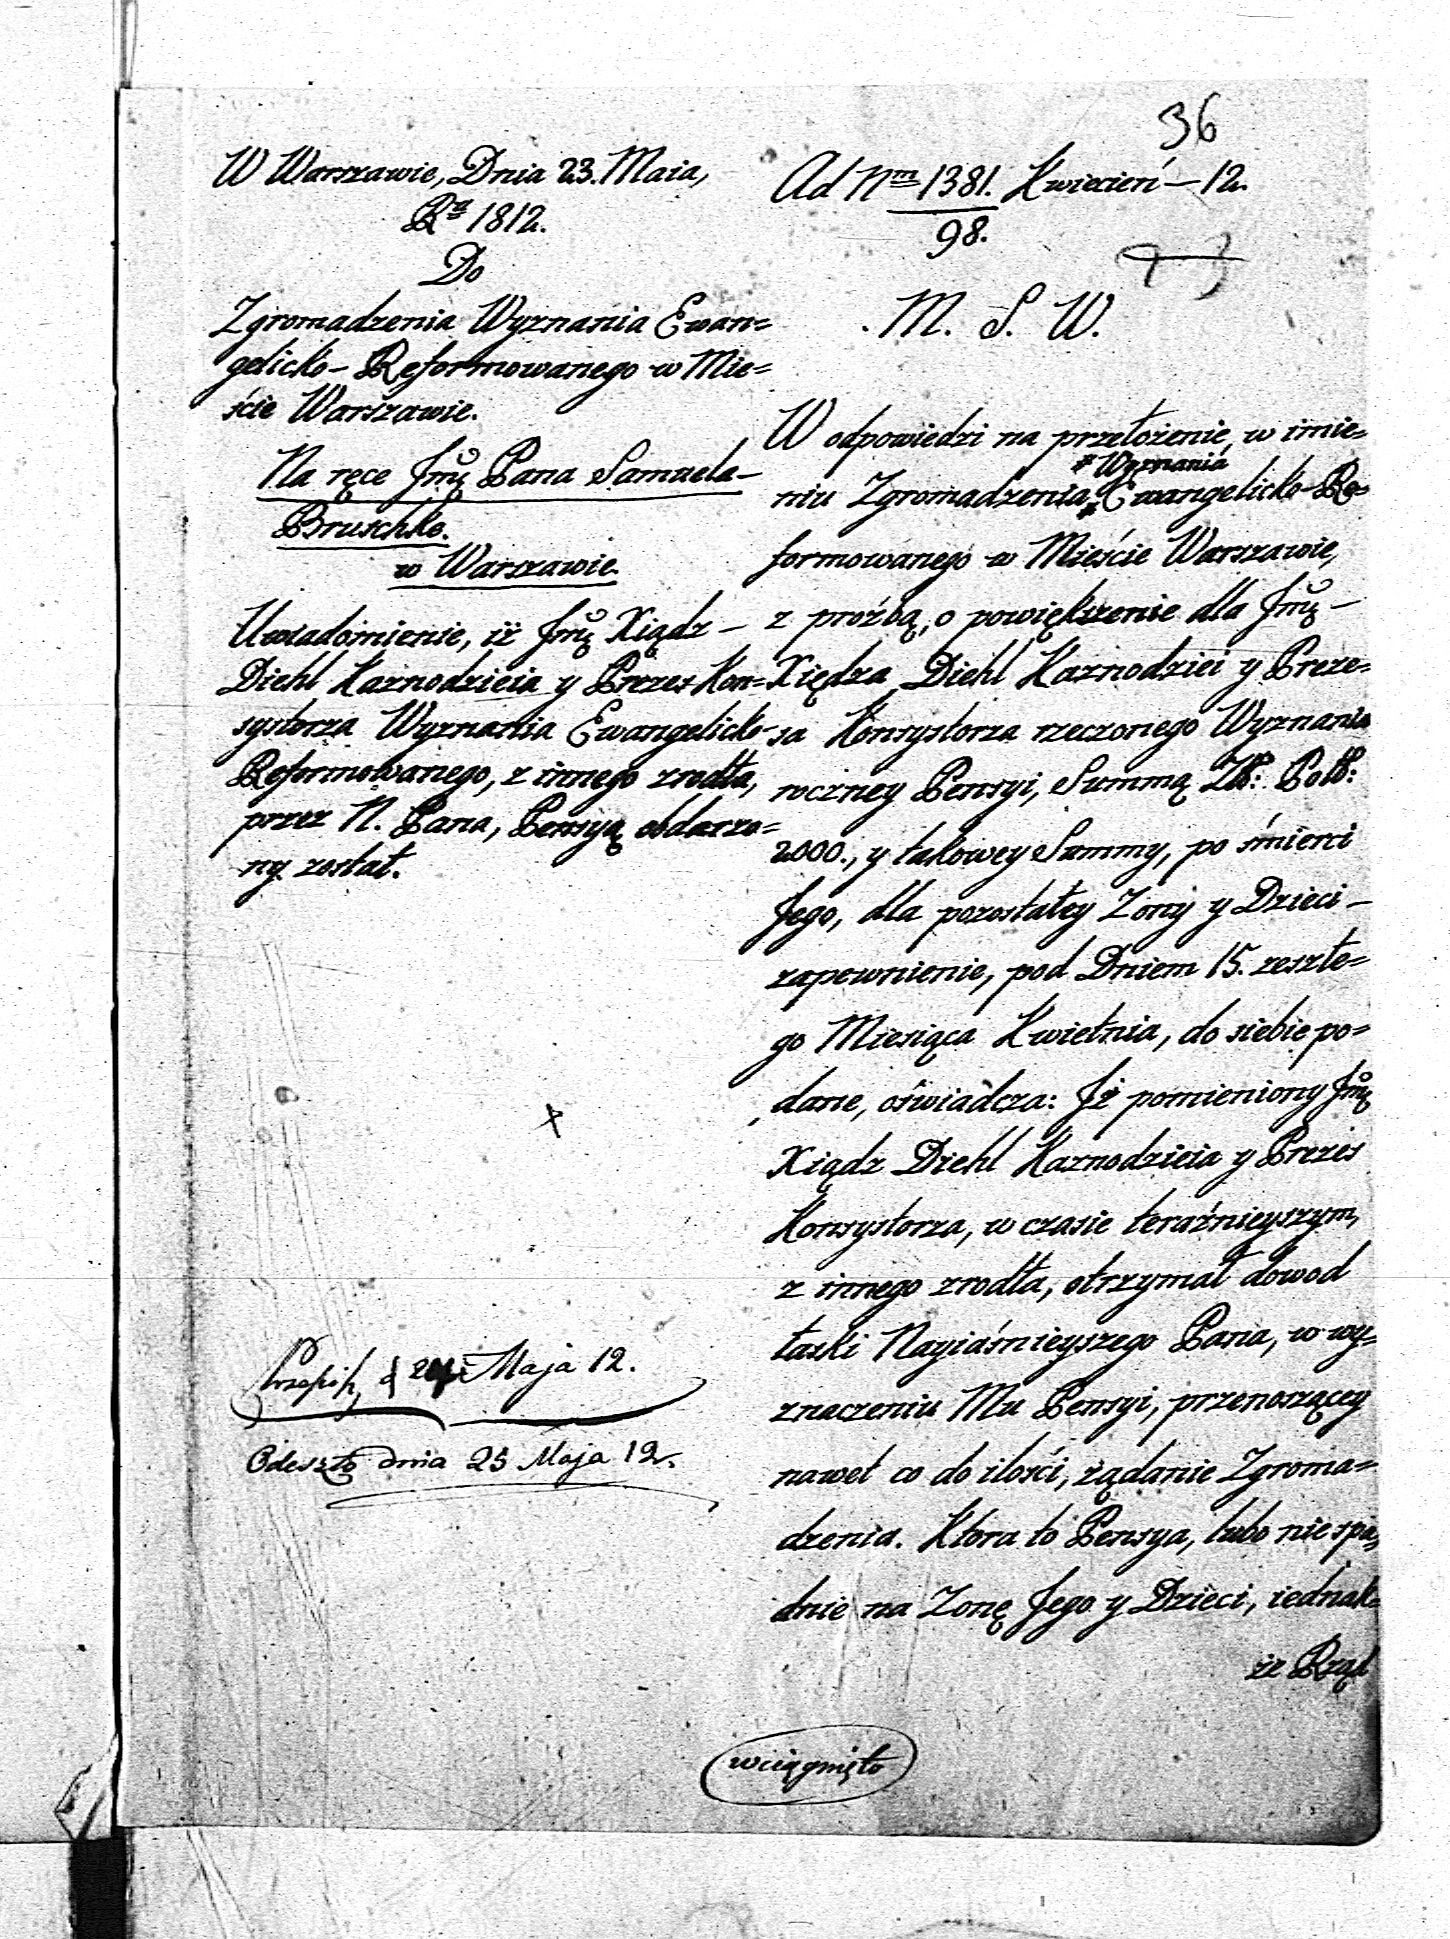 36
W Warszawie, Dnia 23. Maia,
Rª 1812.
Do
Zgromadzenia Wyznania Ewan=
gelicko-Reformowanego w Mie=
ście Warszawie.
Na ręce Jmę Pana Samuela-
Bruschke.
w Warszawie.
Uwiadomienie, iż Jmę Xiądz-
Diehl Kaznodzieia y Prezes Kon=
systorza Wyznania Ewangelicko-
Reformowanego, z innego zrodła,
przez N. Pana, Pensyą obdarzo=
ny został.
d 24 Maja 12.
Odeszło dnia 25 Maja 12.
Ad Nm 1381. Kwiecień-12.
98.
M. S. W.
W odpowiedzi na przełożenie, w imie=
# Wyznania
niu Zgromadzenia # Ewangelicko-Re=
formowanego w Mieście Warszawie,
z proźbą, o powiększenie dla Jmę-
Xiędza Diehl Kaznodziei y Preze=
sa Konsystorza rzeczonego Wyznania
roczney Pensyi, Summą Zł: Pol:
2000., y takowey Summy, po śmierci
Jego, dla pozostałey Zony y Dzieci-
zapewnienie, pod Dniem 15. zeszłe=
go Miesiąca Kwietnia, do siebie po=
dane, oświadcza: Jż pomieniony Jmę
Xiądz Diehl Kaznodzieia y Prezes
Konsystorza, w czasie teraźnieyszym,
z innego zrodła, otrzymał dowod
łaski Nayiaśnieyszego Pana, w wy=
znaczeniu Mu Pensyi, przenoszącey
nawet co do ilości, żądanie Zgroma=
dzenia. Ktora to Pensya, lubo nie spa=
dnie na Zonę Jego y Dzieci, iednak=
że Rząd
wciągnięto